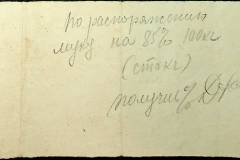 по распоряжению
муку на 85% 100 кг
(сто кг)
получил